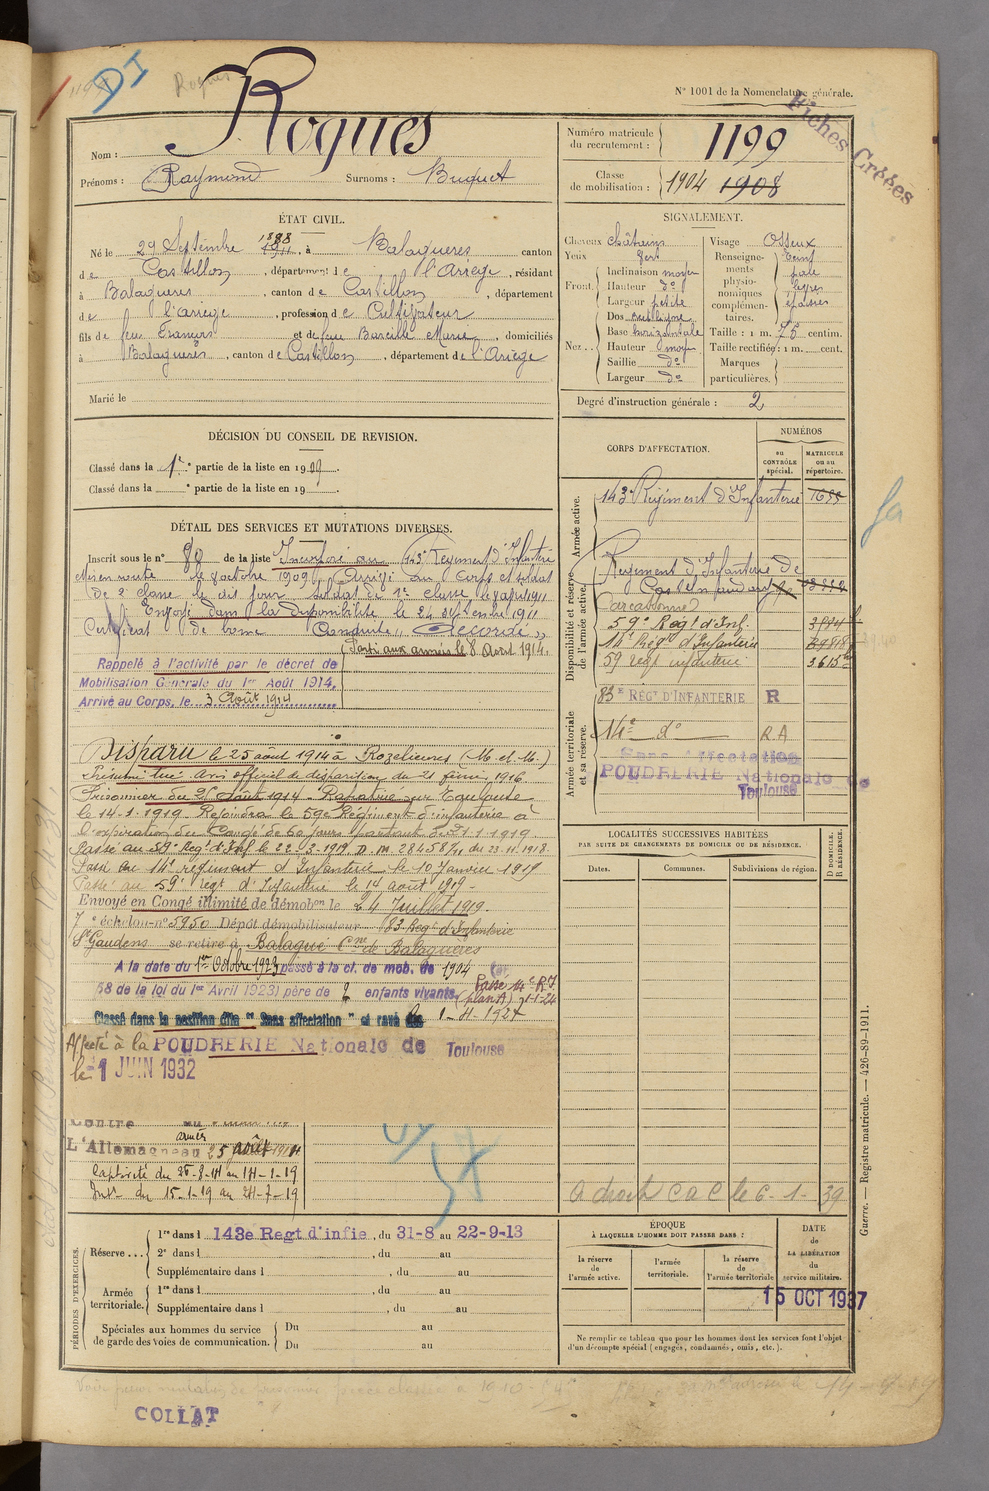 DI
1199
Roques
N° 1001 de la Nomenclature générale.
Fiches Créées
Nom : Roques
Prénoms : Raymond Surnoms : Buquet
Numéro matricule du recrutement : 1199
Classe de mobilisation : 1904 1908
ÉTAT CIVIL.
Né le 29 Septembre 1888, à Balaguères canton
de Castillon, département de l'Ariège, résidant
à Balaguères, canton de Castillon, département
de l'ariège, profession de Cultivateur
fils de feu François et de feue Bareille Marie, domiciliés
à Balaguères, canton de Castillon, département de l'Ariège
Marié le
SIGNALEMENT.
Cheveux châtains
Yeux verts
Front. Inclinaison moyen
Hauteur d°
Largeur petite
Nez.. Dos rectiligne
Base horizontale
Hauteur moyen
Saillie d°
Largeur d°
Visage Osseux
Renseignements physionomiques complémentaires. Teint pâle lèvres épaisses
Taille : 1 m. 75 centim.
Taille rectifiée : 1 m. cent.
Marques particulières.
Degré d'instruction générale : 2
DÉCISION DU CONSEIL DE REVISION.
Classé dans la 1re partie de la liste en 1909.
Classé dans la e partie de la liste en 19 .
DÉTAIL DES SERVICES ET MUTATIONS DIVERSES.
Inscrit sous le n° 80 de la liste Incorporé au 143e Régiment d'Infanterie
et mis en route le 8 octobre 1909. Arrivé au corps et soldat
de 2e classe le dit jour. Soldat de 1e classe le 8 avril 1911
Envoyé dans la disponibilité le 24 septembre 1911
Certificat de bonne Conduite "Accordé"
Parti aux armées le 8 Août 1914.
Rappelé à l'activité par le décret de
Mobilisation Générale du 1er Août 1914.
Arrivé au Corps, le 3 Août 1914
Disparu le 25 août 1914 à Rozelieures (M. et M.)
Présumé tué. Avis officiel de disparition du 21 février 1916
Prisonnier du 25 Août 1914 - Rapatrié sur Toulouse
le 14-1-1919 Rejoindra le 59e Régiment d'infanterie à
l'expiration du Congé de 60 jours partant du 21.1.1919.
Passé au 59e Regt d'Inf. le 22.3.1919 D.M. 28458 1/11 du 23.11.1918.
Passé au 14e régiment d'Infanterie le 10 Janvier 1919
Passé au 59e régt d'Infanterie le 14 août 1919 -
Envoyé en Congé illimité de démobon le 24 Juillet 1919.
7e échelon-n° 5950 Dépôt démobilisateur 83 Regt d'Infanterie
St Gaudens se retire à Balagué Cne de Balaguères
A la date du 1er Octobre 1923 passé à la cl. de mob. de 1904
58 de la loi du 1er Avril 1923) père de 2 enfants vivants.
Passé 14e R.I. (plan A) 1-1-24
Classé dans la position dite "Sans affectation" et rayé des
1-11-1927
Affecté à la POUDRERIE Nationale de Toulouse
le 1 JUIN 1932
Contre
L'Allemagne au 25 août 1914
armées
Captivité du 25-8-14 au 14-1-19
Intr du 15-1-19 au 24-7-19
CORPS D'AFFECTATION.
NUMÉROS
au CONTRÔLE spécial.
MATRICULE ou au répertoire.
Armée active.
143e Régiment d'Infanterie 7655
Disponibilité et réserve de l'armée active.
Régiment d'Infanterie de
Castelnaudary
Carcassonne
59e Regt d'Inf.
14e Regt d'Infanterie
59 régt infanterie 3615
Armée territoriale et sa réserve.
83E REGT D'INFANTERIE R
14e d° R.A
Sans Affectation
POUDRERIE Nationale de
Toulouse
LOCALITÉS SUCCESSIVES HABITÉES
PAR SUITE DE CHANGEMENTS DE DOMICILE OU DE RÉSIDENCE.
Dates. Communes. Subdivisions de région.
D DOMICILE. R RÉSIDENCE.
A droit C a C le 6-1-39
PÉRIODES D'EXERCICES.
Réserve... 1re dans l 143e Regt d'infie, du 31-8 au 22-9-13
2e dans l , du au
Supplémentaire dans l , du au
Armée territoriale. 1re dans l , du au
Supplémentaire dans l , du au
Spéciales aux hommes du service de garde des voies de communication. Du au
Du au
ÉPOQUE
À LAQUELLE L'HOMME DOIT PASSER DANS :
la réserve de l'armée active.
l'armée territoriale.
la réserve de l'armée territoriale
DATE de LA LIBÉRATION du service militaire.
15 OCT 1937
Ne remplir ce tableau que pour les hommes dont les services font l'objet
d'un décompte spécial (engagés, condamnés, omis, etc.).
Guerre. — Registre matricule. — 426-89-1911.
COLLAT